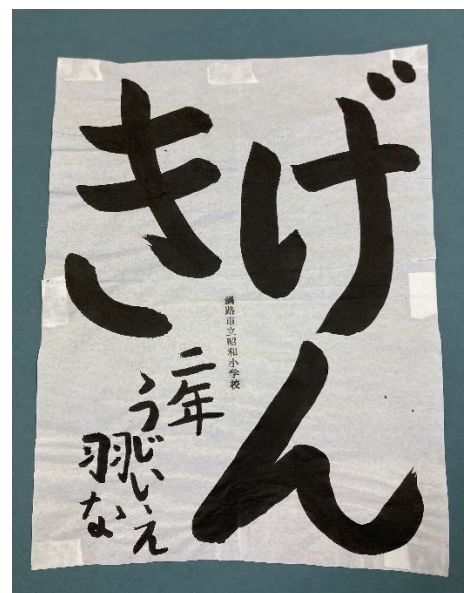 げん
き
釧路市立昭和小学校
二年
うじいえ
羽な